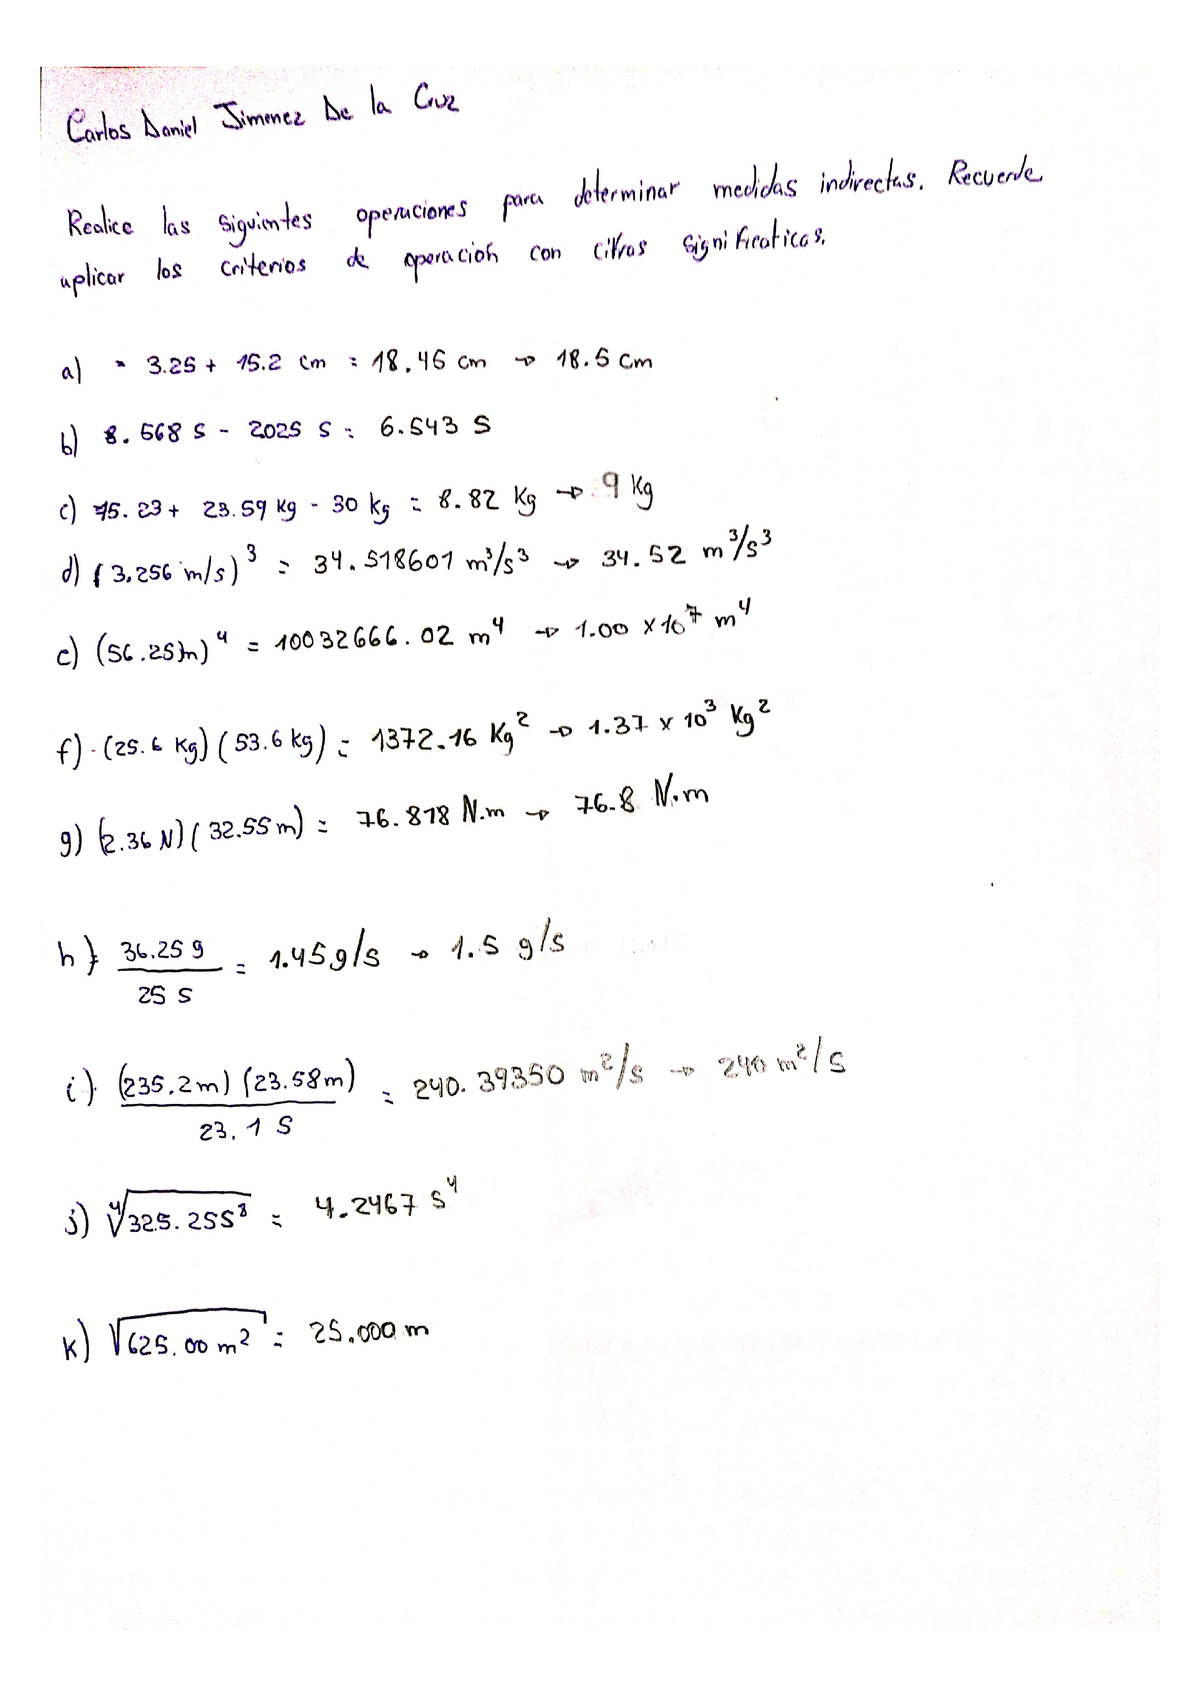 Carlos Daniel Jimenez De la Cruz
Realice las siguientes operaciones para determinar medidas indirectas. Recuerde
aplicar los criterios de operación con cifras significaticas.
a) 3.25 + 15.2 cm = 18.45 cm → 18.5 cm
b) 8.568 s - 2.025 s = 6.543 s
c) 15.23 + 23.59 kg - 30 kg = 8.82 kg → 9 kg
d) (3.256 m/s)³ = 34.518601 m³/s³ → 34.52 m³/s³
e) (56.28 m)⁴ = 10032666.02 m⁴ → 1.00 x 10⁷ m⁴
f) (25.6 kg) (53.6 kg) = 1372.16 kg² → 1.37 x 10³ kg²
g) (2.36 N) (32.55 m) = 76.818 N.m → 76.8 N.m
h) 36.25 g / 25 s = 1.45 g/s → 1.5 g/s
i) (235.2 m) (23.58 m) / 23.1 s = 240.39350 m²/s → 240 m²/s
j) ⁴√325.25 s³ = 4.2467 s⁴
k) √625.00 m² = 25.000 m